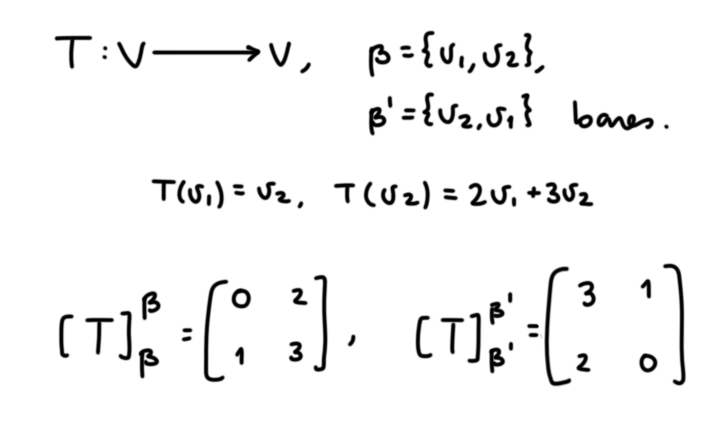 T : V ⟶ V, β = {v₁, v₂},
β' = {v₂, v₁} bases.
T(v₁) = v₂, T(v₂) = 2v₁ + 3v₂
[T]_β^β = (0 2; 1 3), [T]_β'^β' = (3 1; 2 0)